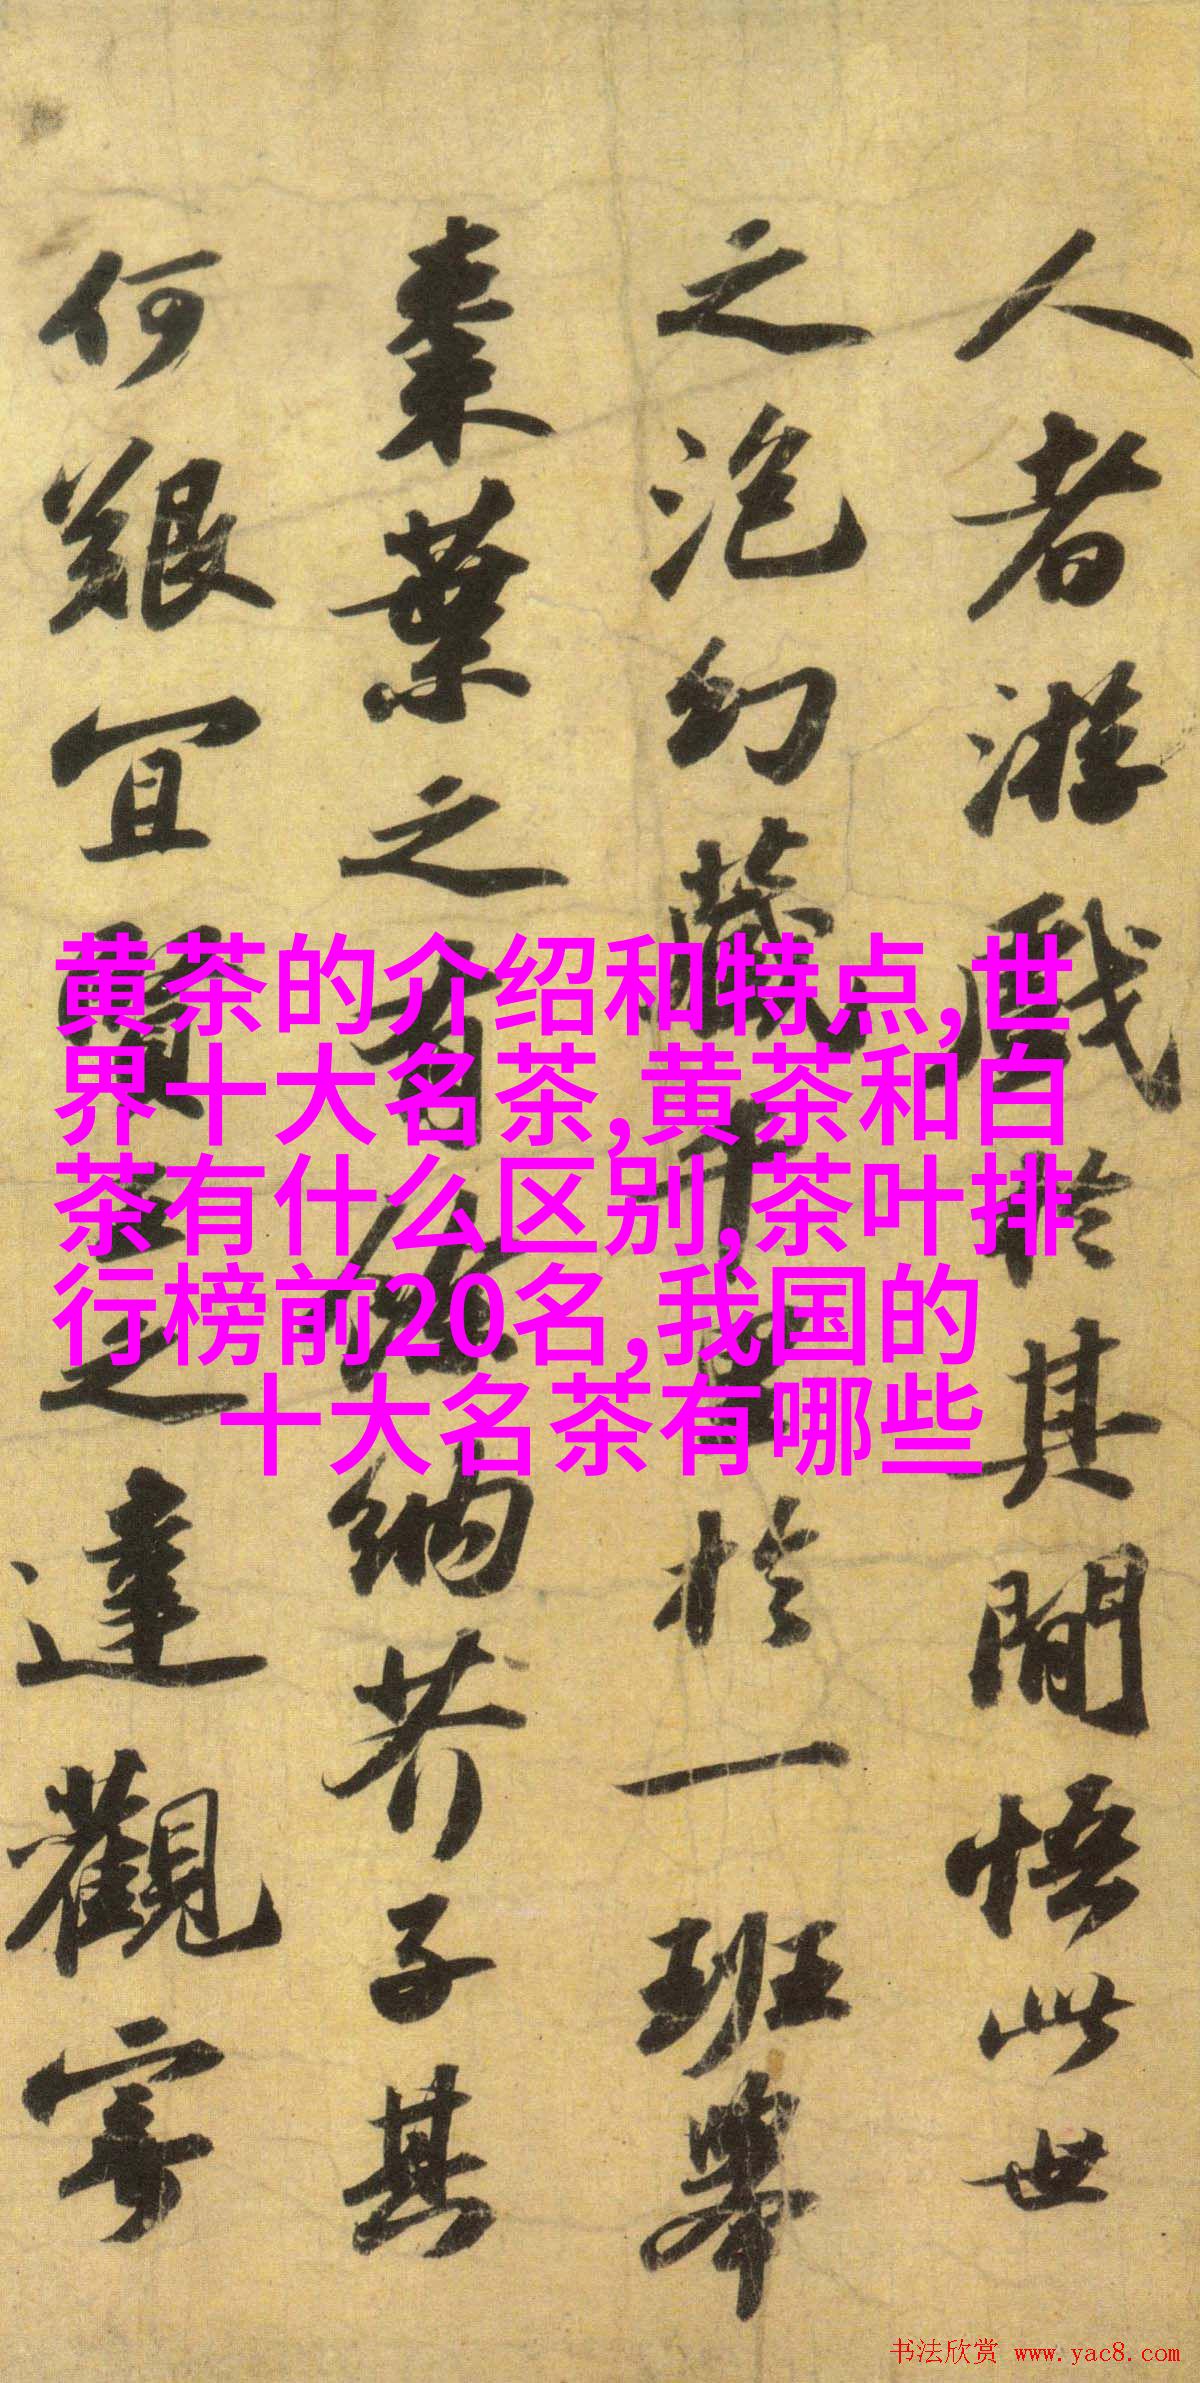 人者游戲於其間悟此世
之泡幻藏千里於一班舉
棗葉之有餘納芥子其
何艱宜賢王之達觀寄
黄茶的介绍和特点,世
界十大名茶,黄茶和白
茶有什么区别,茶叶排
行榜前20名,我国的
十大名茶有哪些
书法欣赏 www.yac8.com